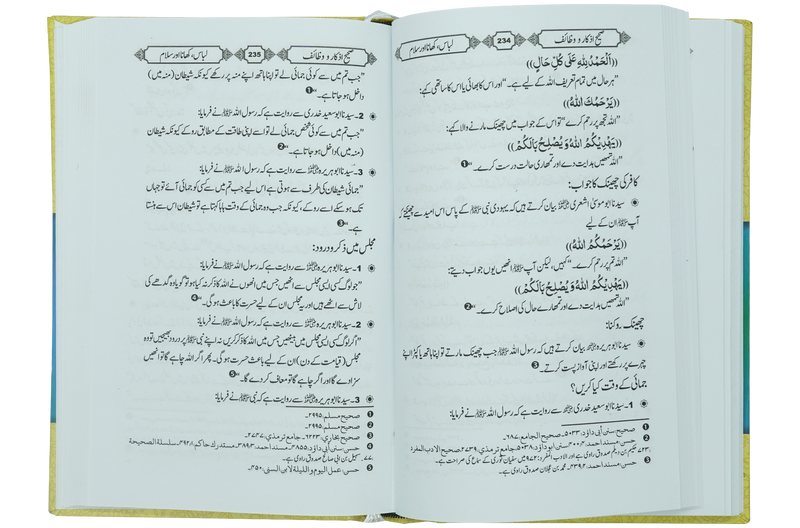 صحیح اذکار و وظائف
234
لباس، کھانا اور سلام
((اَلْحَمْدُ لِلّٰهِ عَلٰى كُلِّ حَالٍ))
”ہر حال میں تمام تعریف اللہ کے لیے ہے۔“ اور اس کا بھائی یا اس کا ساتھی کہے:
((يَرْحَمُكَ اللهُ))
”اللہ تجھ پر رحم کرے“ تو اس کے جواب میں چھینک مارنے والا کہے:
((يَهْدِيْكُمُ اللهُ وَ يُصْلِحُ بَالَكُمْ))
”اللہ تمھیں ہدایت دے اور تمھاری حالت درست کرے۔“ ❶
کافر کی چھینک کا جواب:
سیدنا ابو موسیٰ اشعری رضی اللہ عنہ بیان کرتے ہیں کہ یہودی نبی ﷺ کے پاس اس امید سے چھینکتے کہ
آپ ﷺ ان کے لیے
((يَرْحَمُكُمُ اللهُ))
”اللہ تم پر رحم کرے۔“ کہیں، لیکن آپ ﷺ انھیں یوں جواب دیتے:
((يَهْدِيْكُمُ اللهُ وَ يُصْلِحُ بَالَكُمْ))
”اللہ تمھیں ہدایت دے اور تمھارے حال کی اصلاح کرے۔“ ❷
چھینک روکنا:
سیدنا ابو ہریرہ رضی اللہ عنہ بیان کرتے ہیں کہ رسول اللہ ﷺ جب چھینک مارتے تو اپنا ہاتھ یا کپڑا اپنے
چہرے پر رکھتے اور اپنی آواز پست کرتے۔ ❸
جمائی کے وقت کیا کریں؟
1- سیدنا ابو سعید خدری رضی اللہ عنہ سے روایت ہے کہ رسول اللہ ﷺ نے فرمایا:
❶ صحیح سنن ابی داؤد: ٥٠٣٣۔ صحیح الجامع: ٦٨٧۔
صحیح اذکار و وظائف
235
لباس، کھانا اور سلام
”جب تم میں سے کوئی جمائی لے تو اپنا ہاتھ اپنے منہ پر رکھے کیونکہ شیطان (منہ میں)
داخل ہو جاتا ہے۔“ ❶
2- سیدنا ابو سعید خدری رضی اللہ عنہ سے روایت ہے کہ رسول اللہ ﷺ نے فرمایا:
”جب تم میں سے کوئی شخص جمائی لے تو اسے اپنی طاقت کے مطابق روکے کیونکہ شیطان
(منہ میں) داخل ہو جاتا ہے۔“ ❷
3- سیدنا ابو ہریرہ رضی اللہ عنہ سے روایت ہے کہ رسول اللہ ﷺ نے فرمایا:
”جمائی شیطان کی طرف سے ہوتی ہے اس لیے جب تم میں سے کسی کو جمائی آئے تو جہاں
تک ہو سکے اسے روکے، کیونکہ جب وہ جمائی کے وقت ہاہا کہتا ہے تو شیطان اس سے ہنستا
ہے۔“ ❸
مجلس میں ذکر و درود:
1- سیدنا ابو ہریرہ رضی اللہ عنہ سے روایت ہے کہ رسول اللہ ﷺ نے فرمایا:
”جو لوگ کسی ایسی مجلس سے اٹھیں جس میں انھوں نے اللہ کا ذکر نہ کیا ہو تو گویا وہ گدھے کی
لاش سے اٹھے ہیں اور یہ مجلس ان کے لیے حسرت کا باعث ہوگی۔“ ❹
2- سیدنا ابو ہریرہ رضی اللہ عنہ سے روایت ہے کہ رسول اللہ ﷺ نے فرمایا:
”اگر لوگ کسی ایسی مجلس میں بیٹھیں جس میں اللہ کا ذکر کریں نہ اپنے نبی ﷺ پر درود بھیجیں تو وہ
مجلس (قیامت کے دن) ان کے لیے باعث حسرت ہوگی۔ پھر اگر اللہ چاہے گا تو انھیں
سزا دے گا اور اگر چاہے گا تو معاف کر دے گا۔“ ❺
3- سیدنا ابو ہریرہ رضی اللہ عنہ سے روایت ہے کہ نبی ﷺ نے فرمایا:
❶ صحیح مسلم: ٢٩٩٥۔
❷ صحیح مسلم: ٢٩٩٥۔
❸ صحیح بخاری: ٦٢٢٣۔ جامع ترمذی: ٢٧٤٧۔
❹ حسن، سنن أبی داؤد: ٤٨٥٥۔
❺ حسن، عمل اليوم والليلة لابن السنی: ٤٥٠۔